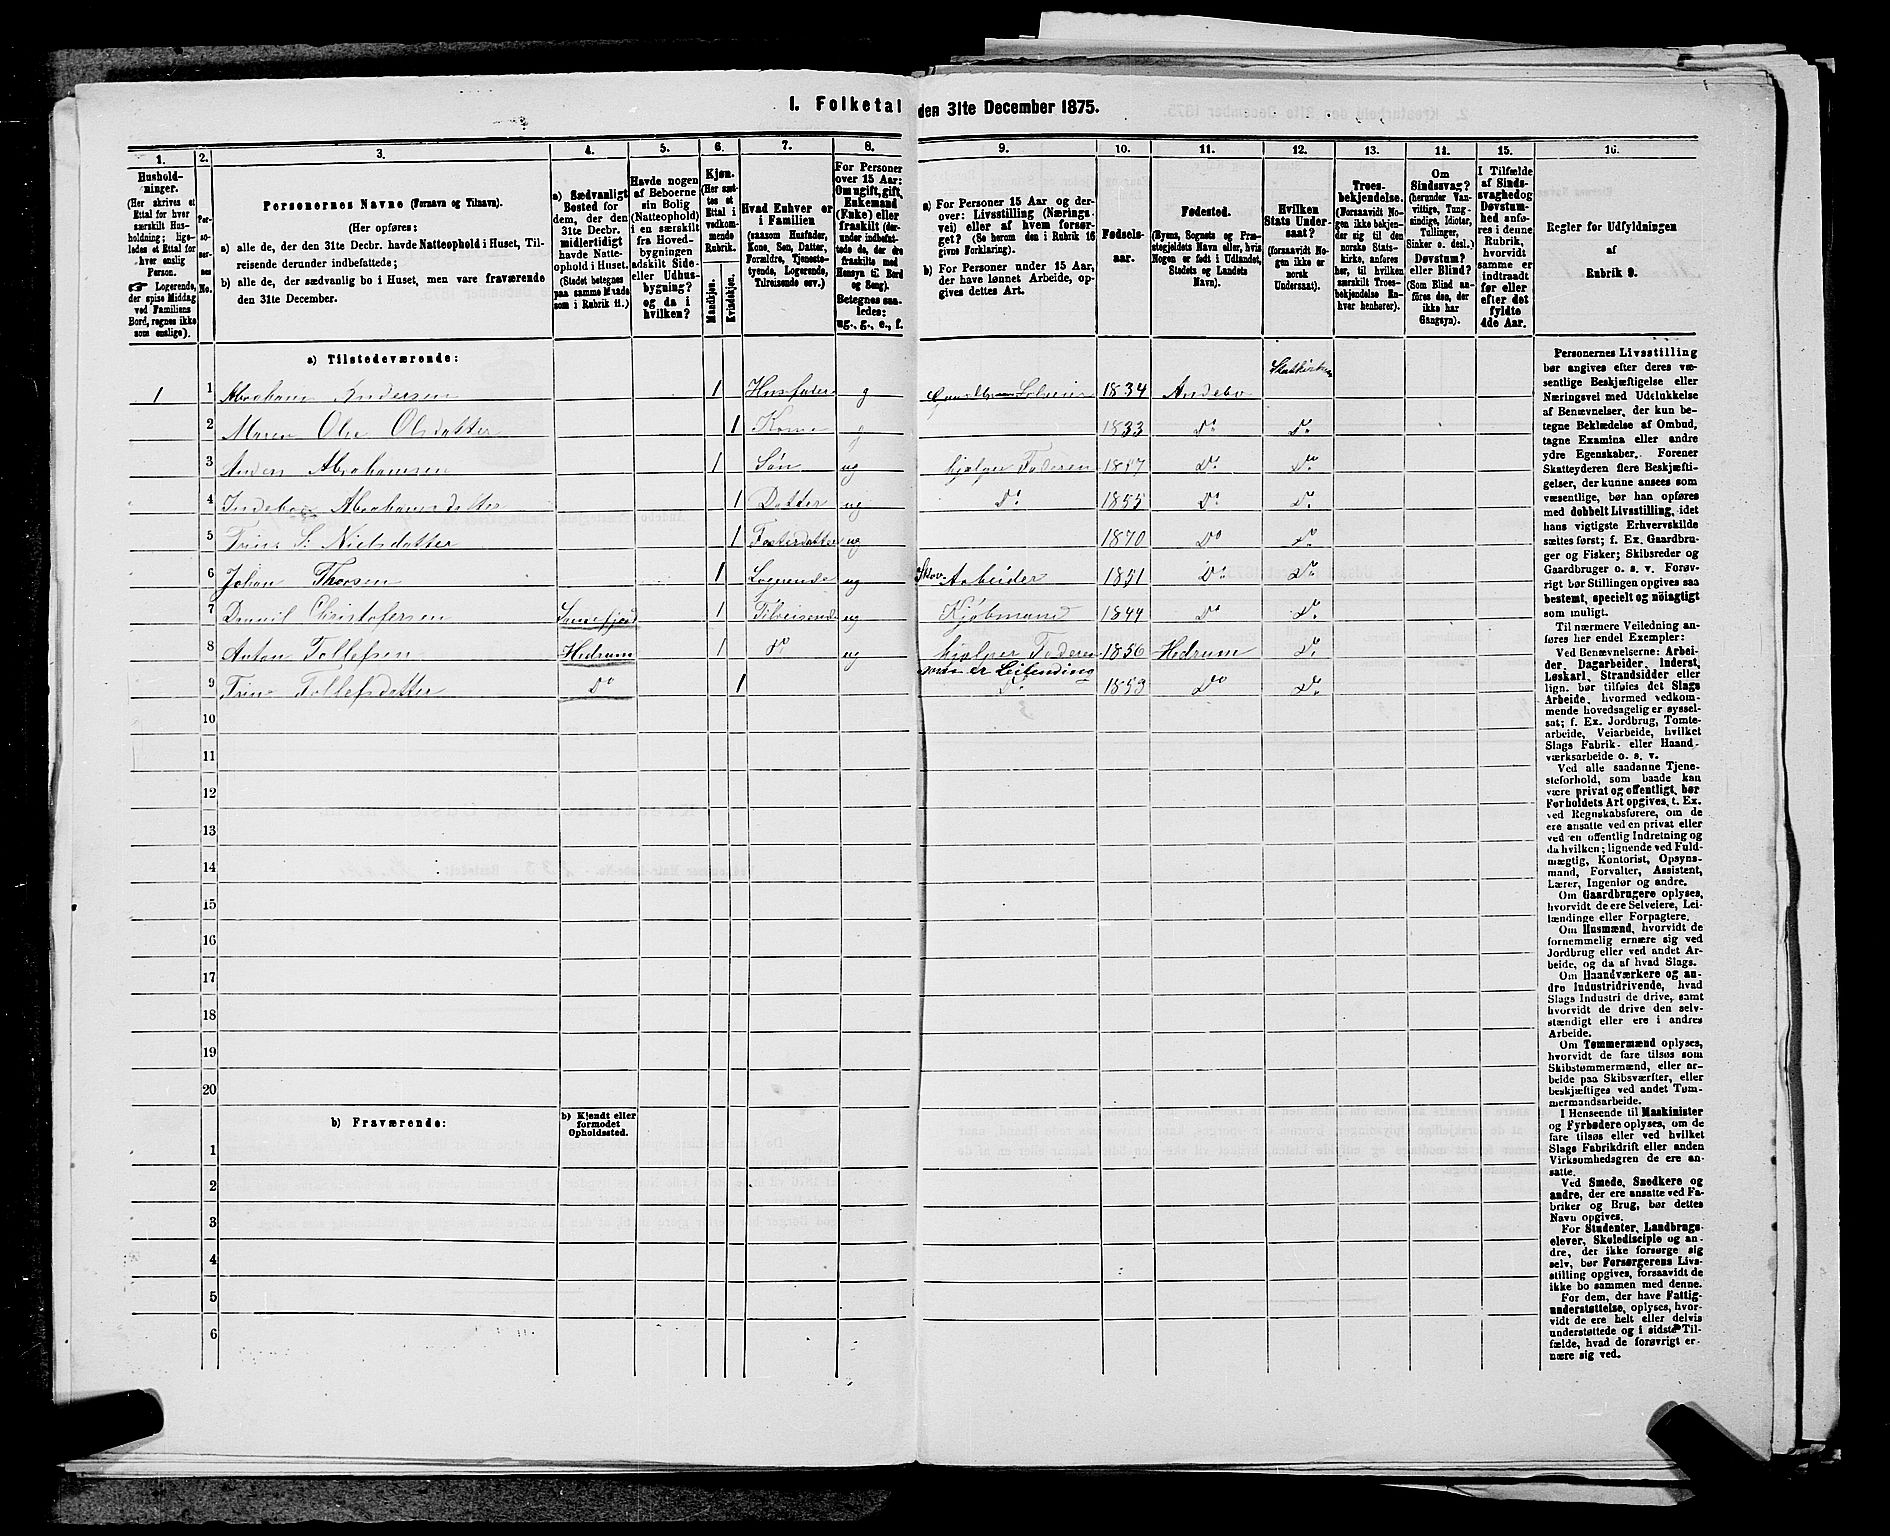 I. Folketal den 31te December 1875.
1. 2. 3. 4. 5. 6. 7. 8. 9. 10. 11. 12. 13. 14. 15. 16.
Hushold-
ninger.
(Her skrives et
Ettal for hver
særskilt Hus-
holdning; lige-
ledes et Ettal for
hver enslig
Person.
☞ Logerende,
der spise Middag
ved Familiens
Bord, regnes ikke
som enslige).
Per-
so-
ner-
nes
No.
Personernes Navne (Fornavn og Tilnavn).
(Her opføres:
a) alle de, der den 31te Decbr. havde Natteophold i Huset, Til-
reisende derunder indbefattede;
b) alle de, der sædvanlig bo i Huset, men vare fraværende
den 31te December.
a) Sædvanligt
Bosted for
dem, der den
31te Decbr.
midlertidigt
havde Natte-
ophold i Huset.
(Stedet betegnes
paa samme Maade
som i Rubrik 11.)
Havde nogen
af Beboerne
sin Bolig
(Natteophold)
i en særskilt
fra Hoved-
bygningen
adskilt Side-
eller Udhus-
bygning?
og da i
hvilken?
Kjøn.
(Her sæt-
tes et
Ettal i
vedkom-
mende
Rubrik.
Mandkjøn.
Kvindekjøn.
Hvad Enhver er
i Familien
(saasom Husfader,
Kone, Søn, Datter,
Forældre, Tjeneste-
tyende, Logerende,
Tilreisende osv.)
For Personer
over 15 Aar:
Om ugift, gift,
Enkemand
(Enke) eller
fraskilt (der-
under indbefat-
tede de, der ere
fraskilte med
Hensyn til Bord
og Seng).
Betegnes saa-
ledes:
ug., g., e., f.
a) For Personer 15 Aar og der-
over: Livsstilling (Nærings-
vei) eller af hvem forsør-
get? (Se herom den i Rubrik 16
givne Forklaring).
b) For Personer under 15 Aar,
der have lønnet Arbeide, op-
gives dettes Art.
Fødsels-
aar.
Fødested.
(Byens, Sognets og Præ-
stegjeldets Navn eller, hvis
Nogen er født i Udlandet,
Stedets og Landets
Navn).
Hvilken
Stats Under-
saat?
(forsaavidt No-
gen ikke er
norsk
Undersaat).
Troes-
bekjendelse.
(Forsaavidt No-
gen ikke bekjen-
der sig til den
norske Stats-
kirke, anføres
her, til hvilken
særskilt Troes-
bekjendelse En-
hver henhører).
Om
Sindssvag?
(herunder Van-
vittige, Tung-
sindige, Idioter,
Tullinger,
Sinker o. desl.)
Døvstum?
eller Blind?
(Som Blind an-
føres den, der
ikke har
Gangsyn).
I Tilfælde
af Sinds-
svaghed og
Døvstum-
hed anfø-
res i denne
Rubrik,
hvorvidt
samme er
indtraadt
før eller
efter det
fyldte
4de Aar.
Regler for Udfyldningen
af
Rubrik 9.
a) Tilstedeværende:
1 1 Abraham Andersen 1 Husfader g Selveier 1834 Andebo Statskirken
2 Maren Olea Olsdatter 1 Kone g 1833 Do Do
3 Anders Abrahamsen 1 Søn ug hjelper Faderen 1847 Do Do
4 Abrahamsdatter 1 Datter ug Do 1855 Do Do
5 Trine S. Nielsdatter 1 Fosterdatter ug 1870 Do Do
6 Johan Thorsen 1 Logerende ug Skov-Arbeider 1851 Do Do
7 Daniel Christofersen Sandefjord 1 Tilreisende ug Kjøbmand 1844 Do Do
8 Anton Tollefsen Hedrum 1 Do ug hjelper Faderen 1856 Hedrum Do
som er Leilending
9 Trine Tollefsdatter Do 1 Do 1859 Do Do
10
11
12
13
14
15
16
17
18
19
20
b) Fraværende:
b) Kjendt eller
formodet
Opholdssted.
1
2
3
4
5
6
Personernes Livsstilling
bør angives efter deres væ-
sentlige Beskjæftigelse eller
Næringsvei med Udelukkelse
af Benævnelser, der kun be-
tegne Beklædelse af Ombud,
tagne Examina eller andre
ydre Egenskaber. Forener
Skatteyderen flere Beskjæfti-
gelser, der kunne ansees som
væsentlige, bør han opføres
med dobbelt Livsstilling, idet
hans vigtigste Erhvervskilde
sættes først; f. Ex. Gaardbru-
ger og Fisker; Skibsreder og
Gaardbruger o. s. v. Forøv-
rigt bør Stillingen opgives saa
bestemt, specielt og nøiagtigt
som muligt.
Til nærmere Veiledning an-
føres her endel Exempler:
Ved Benævnelserne: Arbei-
der, Dagarbeider, Inderst,
Løskarl, Strandsidder eller
lign. bør tilføies det Slags
Arbeide, hvormed vedkom-
mende hovedsagelig er syssel-
sat; f. Ex. Jordbrug, Tomte-
arbeide, Veiarbeide, hvilket
Slags Fabrik- eller Haand-
værksarbeide o. s. v.
Ved alle saadanne Tjene-
steforhold, som baade kan
være privat og offentligt, bør
Forholdets Art opgives, t. Ex.
ved Regnskabsførere, om de
ere ansatte ved en privat eller
ved en offentlig Indretning og
da hvilken; lignende ved Fuld-
mægtig, Kontorist, Opsyns-
mand, Forvalter, Assistent,
Lærer, Ingeniør og andre.
Om Gaardbrugere oplyses,
hvorvidt de ere Selveiere, Lei-
lændinge eller Forpagtere.
Om Husmænd, hvorvidt de
fornemmelig ernære sig ved
Jordbrug eller ved andet Ar-
beide, og da af hvad Slags.
Om Haandværkere og an-
dre Industridrivende, hvad
Slags Industri de drive, samt
hvorvidt de drive den selv-
stændigt eller ere i andres
Arbeide.
Om Tømmermænd oplyses,
hvorvidt de fare tilsøs som
Skibstømmermænd, eller ar-
beide paa Skibsværfter, eller
beskjæftiges ved andet Tøm-
mermandsarbeide.
I Henseende til Maskinister
og Fyrbødere oplyses, om de
fare tilsøs eller ved hvilket
Slags Fabrikdrift eller anden
Virksomhedsgren de ere an-
satte.
Ved Smede, Snedkere og
andre, der ere ansatte ved Fa-
briker og Brug, bør dettes
Navn opgives.
For Studenter, Landbrugs-
elever, Skoledisciple og an-
dre, der ikke forsørge sig
selv, bør Forsørgerens Livs-
stilling opgives, forsaavidt de
ikke bo sammen med denne.
For dem, der have Fattig-
understøttelse, oplyses, hvor-
vidt de ere helt eller delvis
understøttede og i sidste Til-
fælde, hvad de forøvrigt er-
nære sig ved.